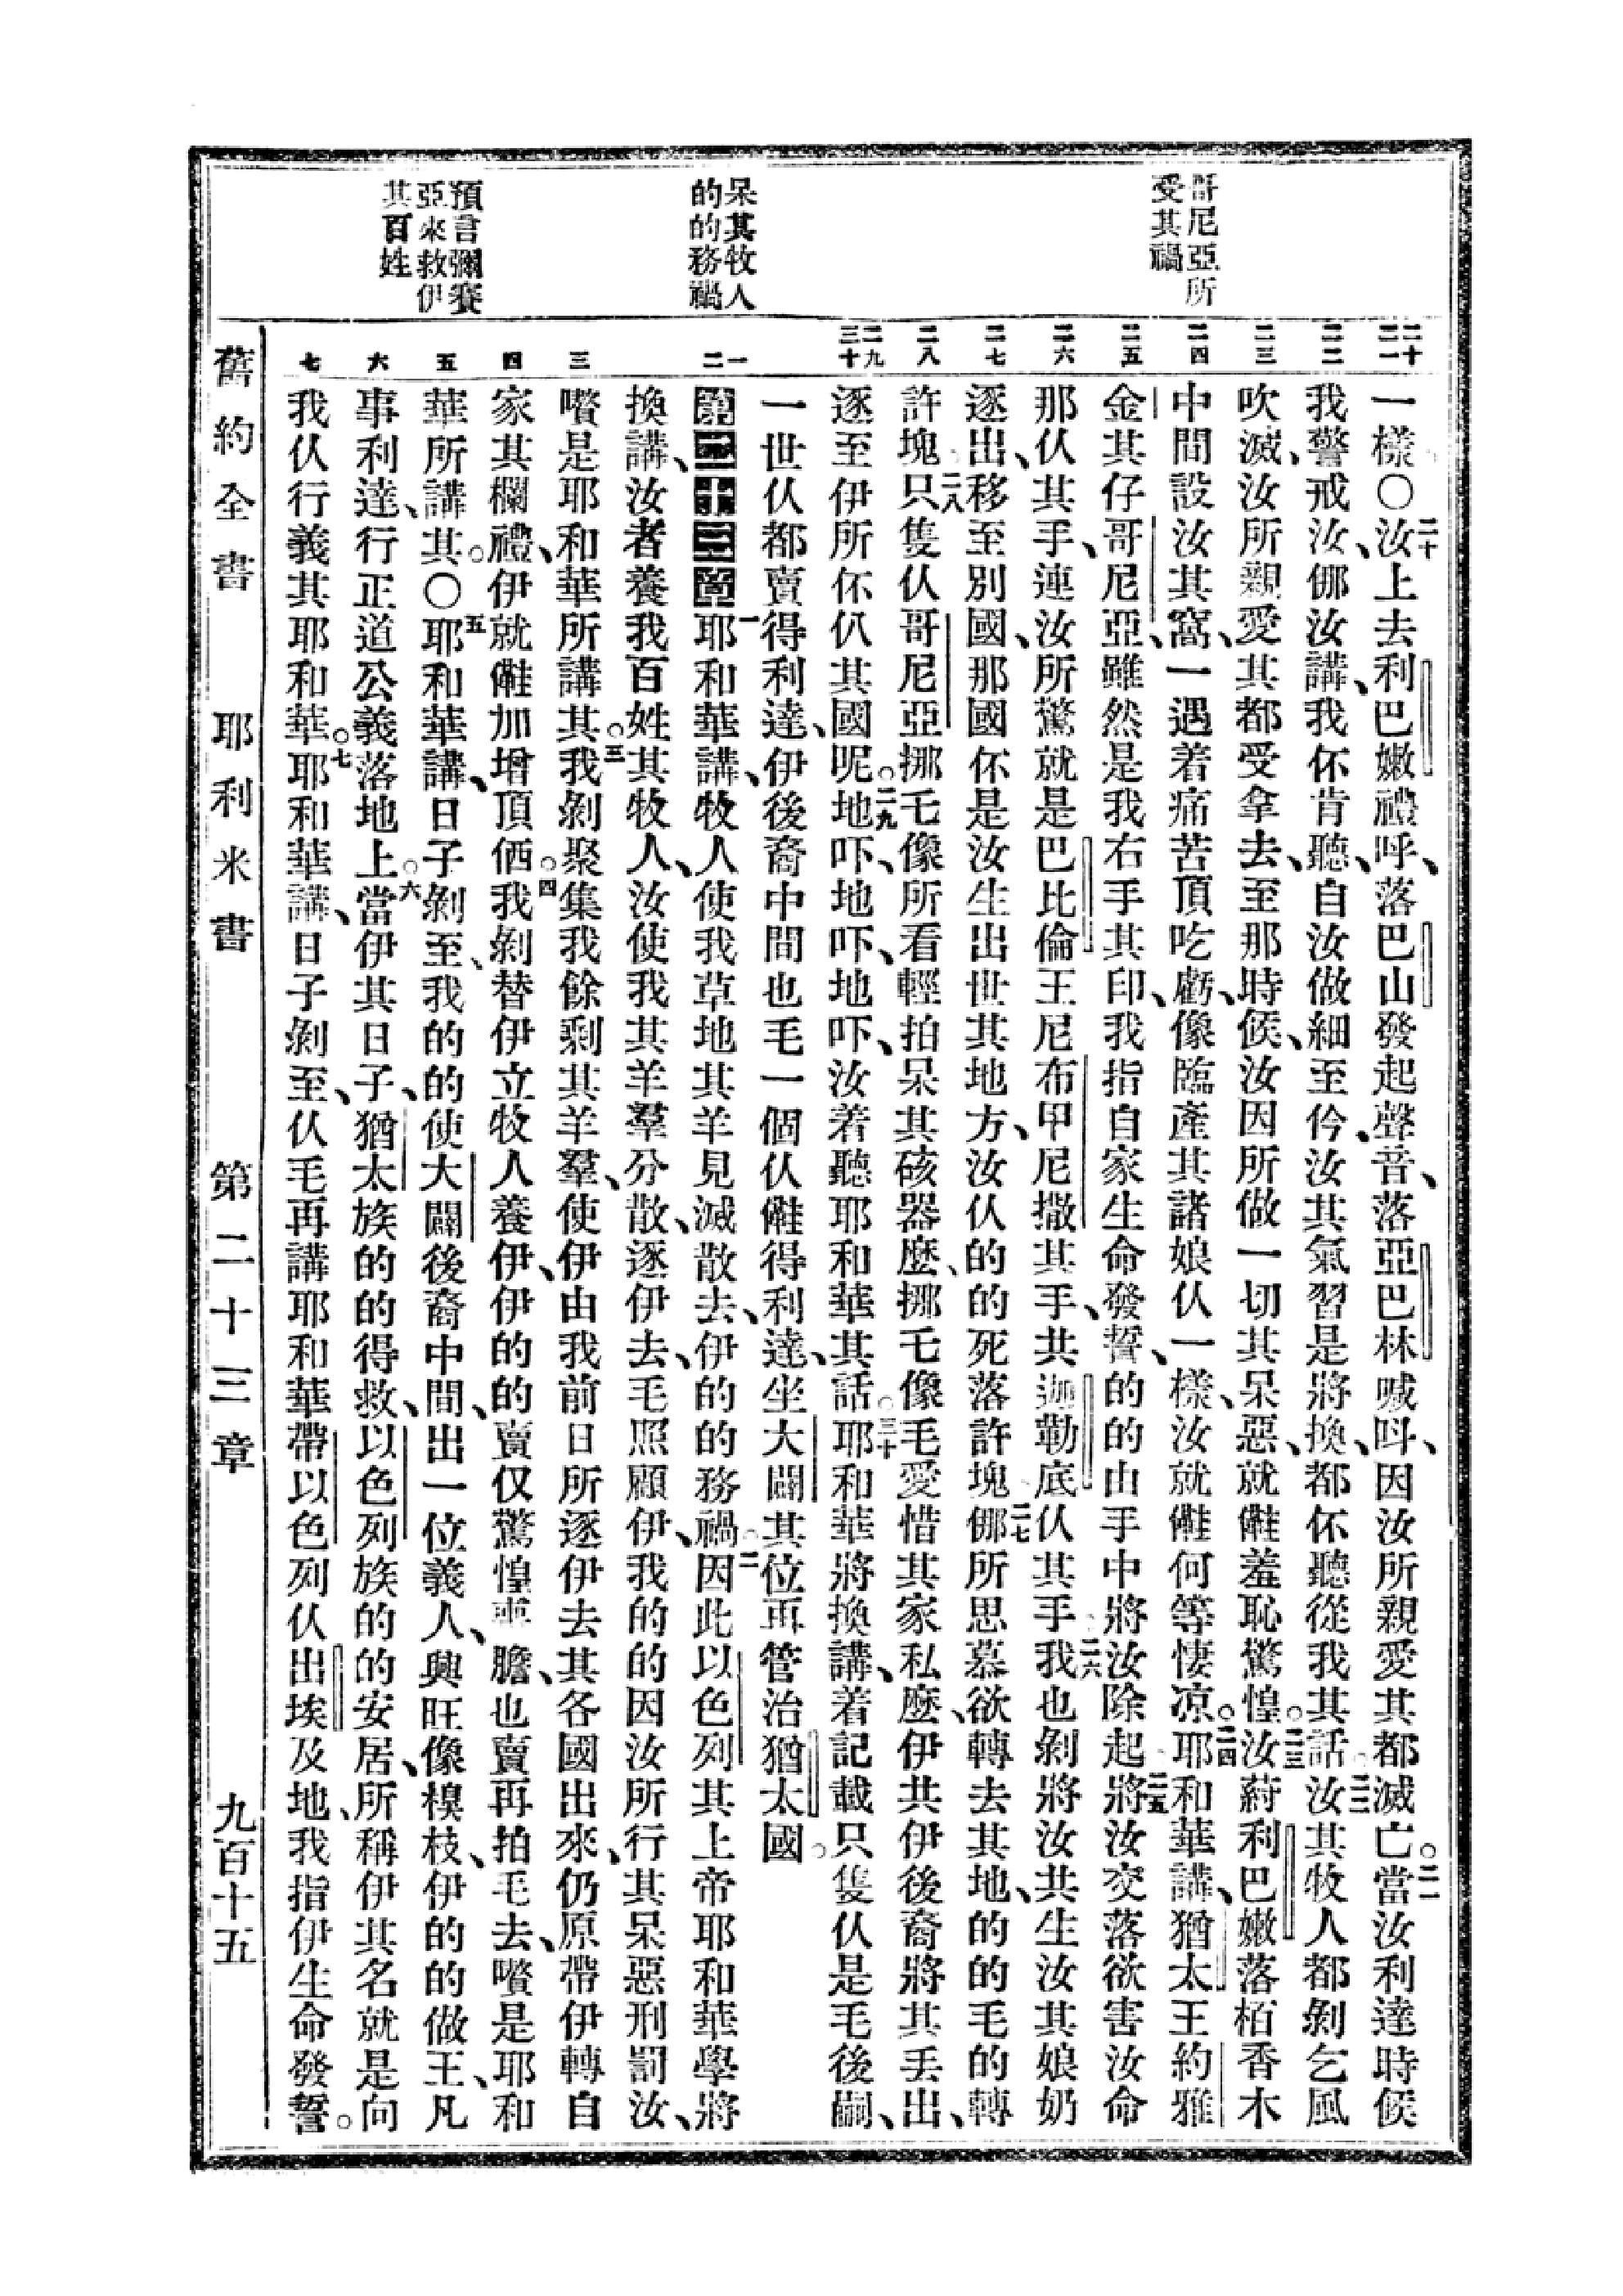 哥尼亞所
受其禍
呆其牧人
的的務禍
預言彌賽
亞來救伊
其百姓
二十
二一
二二
二三
二四
二五
二六
二七
二八
二九
三十
一
二
三
四
五
六
七
一樣〇二十汝上去利巴嫩禮呼、落巴山發起聲音、落亞巴林喊呌、因汝所親愛其都滅亡。二一當汝利達時候
我警戒汝、倻汝講、我伓肯聽、自汝做細至仱、汝其氣習是將換、都伓聽從我其話。二二汝其牧人都剝乞風
吹滅、汝所親愛其都受拿去、至那時候、汝因所做一切其呆惡、就𣍐羞恥驚惶。二三汝𦵴利巴嫩落栢香木
中間設汝其窩、一遇着痛苦頂吃虧、像臨產其諸娘仈一樣、汝就𣍐何等悽凉。二四耶和華講、猶太王約雅
金其仔哥尼亞、雖然是我右手其印、我指自家生命發誓、的的由手中將汝除起、二五將汝交落欲害汝命
那仈其手、連汝所驚就是巴比倫王尼布甲尼撒其手、共迦勒底仈其手。二六我也剝將汝共生汝其娘奶
逐出、移至別國、那國伓是汝生出世其地方、汝仈的的死落許塊。二七倻所思慕欲轉去其地、的的毛的轉
許塊。二八只隻仈哥尼亞挪乇像所看輕拍呆其硋器麽、挪乇像毛愛惜其家私麽、伊共伊後裔將其丢出、
逐至伊所伓仈其國呢。二九地吓、地吓、地吓、汝着聽耶和華其話。三十耶和華將換講、着記載只隻仈是毛後嗣、
一世仈都賣得利達、伊後裔中間也毛一個仈𣍐得利達、坐大闢其位再管治猶太國。
第二十三章一耶和華講、牧人使我草地其羊見滅散去、伊的的務禍。二因此以色列其上帝耶和華學將
換講、汝者養我百姓其牧人、汝使我其羊羣分散、逐伊去、毛照顧伊、我的的因汝所行其呆惡刑罰汝、
嚽是耶和華所講其。三我剝聚集我餘剩其羊羣、使伊由我前日所逐伊去其各國出來、仍原帶伊轉自
家其欄禮、伊就𣍐加增頂価。四我剝替伊立牧人養伊、伊的的賣仅驚惶喪膽、也賣再拍毛去、嚽是耶和
華所講其。〇五耶和華講、日子剝至、我的的使大闢後裔中間、出一位義人、興旺像樣枝、伊的的做王、凡
事利達、行正道公義落地上。六當伊其日子、猶太族的的得救、以色列族的的安居、所稱伊其名就是向
我仈行義其耶和華。七耶和華講、日子剝至、仈毛再講耶和華帶以色列仈出埃及地、我指伊生命發誓。
舊約全書 耶利米書 第二十三章 九百十五